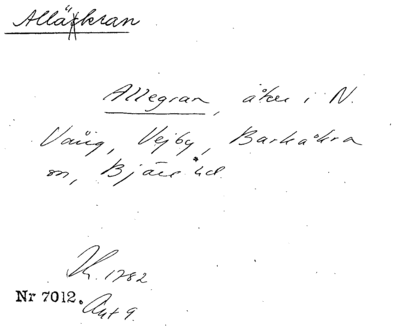 Alläskran
Allegran, åker i N.
Vång, Vejby, Barkåkra
sn, Bjäre hd.
Sk. 1782
Nr 7012. Akt 9.